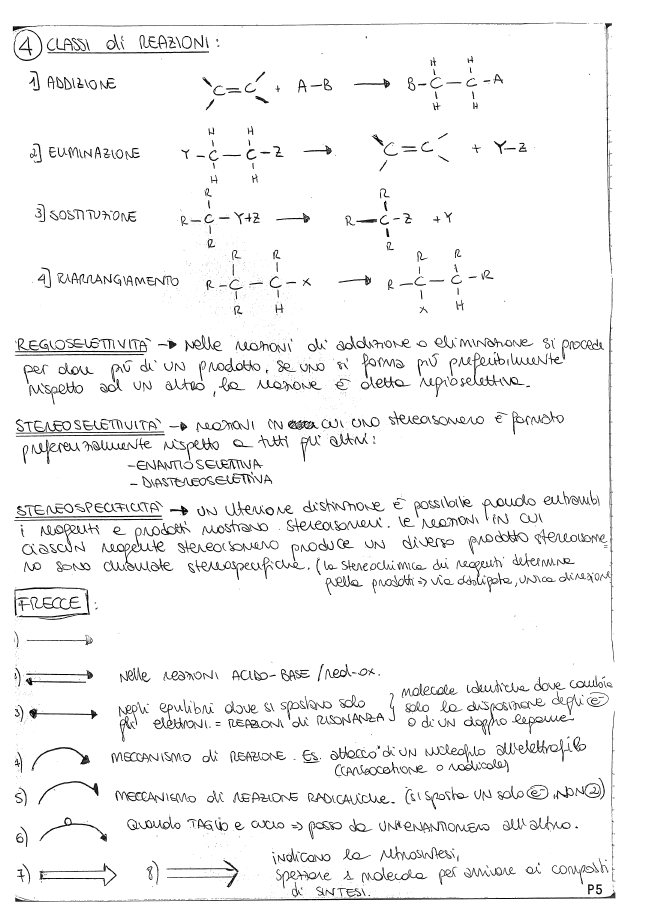 4 CLASSI di REAZIONI:
1] ADDIZIONE C=C + A-B → B-C-C-A
H H
H H
2] ELIMINAZIONE Y-C-C-Z → C=C + Y-Z
H H
H H
3] SOSTITUZIONE R-C-Y+Z → R-C-Z +Y
R R
R R
4] RIARRANGIAMENTO R-C-C-X → R-C-C-R
R R R R
R H X H
REGIOSELETTIVITA' → Nelle reazioni di addizione o eliminazione si procede
per dare più di un prodotto, se uno si forma più preferibilmente
rispetto ad un altro, la reazione è detta regioselettiva.
STEREOSELETTIVITA' → reazioni in cui uno stereoisomero è formato
preferenzialmente rispetto a tutti gli altri:
-ENANTIOSELETTIVA
- DIASTEREOSELETTIVA
STEREOSPECIFICITA' → un ulteriore distinzione è possibile quando entrambi
i reagenti e prodotti mostrano stereoisomeri. Le reazioni in cui
ciascun reagente stereoisomero produce un diverso prodotto stereoisome=
ro sono chiamate stereospecifiche. (la stereochimica dei reagenti determina
quella prodotti ⇒ via obbligata, unica direzione
FRECCE:
1) →
2) Nelle reazioni ACIDO-BASE / red-ox.
3) ↔ Negli equilibri dove si spostano solo } molecole identiche dove cambia
gli elettroni. = REAZIONI di RISONANZA solo la disposizione degli e⁻
o di un doppio legame
4) MECCANISMO di REAZIONE. Es. attacco di un nucleofilo all'elettrofilo
(carbocatione o radicale)
5) MECCANISMO di REAZIONE RADICALICHE. (si sposta UN solo e⁻, NON 2)
6) Quando TAGLIO e cucio ⇒ passo da UN ENANTIOMERO all'altro.
7) ⇒ 8) ⇒ indicano la retrosintesi,
spezzare 1 molecola per arrivare ai composti
di SINTESI.
P5